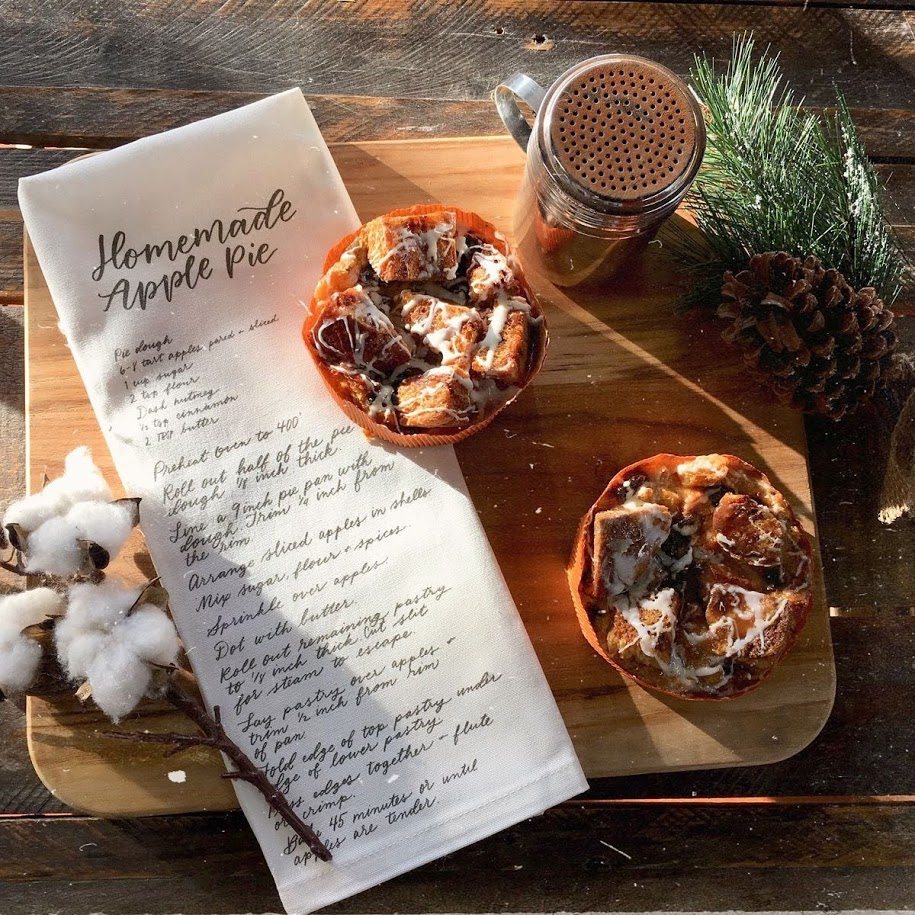 Homemade
Apple Pie
Pie dough
6-8 tart apples, pared + sliced
1 cup sugar
2 tsp flour
Dash nutmeg
½ tsp cinnamon
2 Tbsp butter
Preheat oven to 400°
Roll out half of the pie
dough ⅛ inch thick.
Line a 9 inch pie pan with
dough. Trim ¼ inch from
the rim.
Arrange sliced apples in shells.
Mix sugar, flour + spices.
Sprinkle over apples.
Dot with butter.
Roll out remaining pastry
to ⅛ inch thick. Cut slit
for steam to escape.
Lay pastry over apples +
trim ½ inch from rim
of pan.
Fold edge of top pastry under
edge of lower pastry
Press edges together + flute
or crimp.
Bake 45 minutes or until
apples are tender.